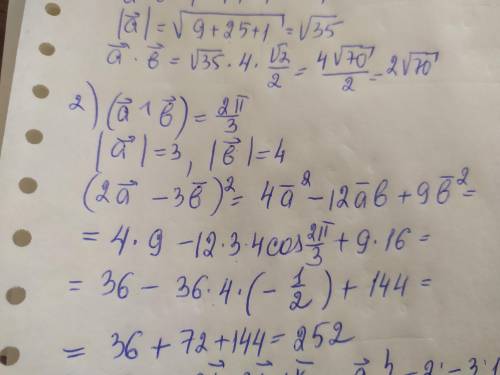 |a⃗| = √9+25+1 = √35
a⃗ · b⃗ = √35 · 4 · √2/2 = 4√70/2 = 2√70
2) (a⃗ ^ b⃗) = 2π/3
|a⃗| = 3, |b⃗| = 4
(2a⃗ - 3b̄)² = 4ā² - 12āb + 9b̄² =
= 4 · 9 - 12 · 3 · 4cos 2π/3 + 9 · 16 =
= 36 - 36 · 4 · (- 1/2) + 144 =
= 36 + 72 + 144 = 252